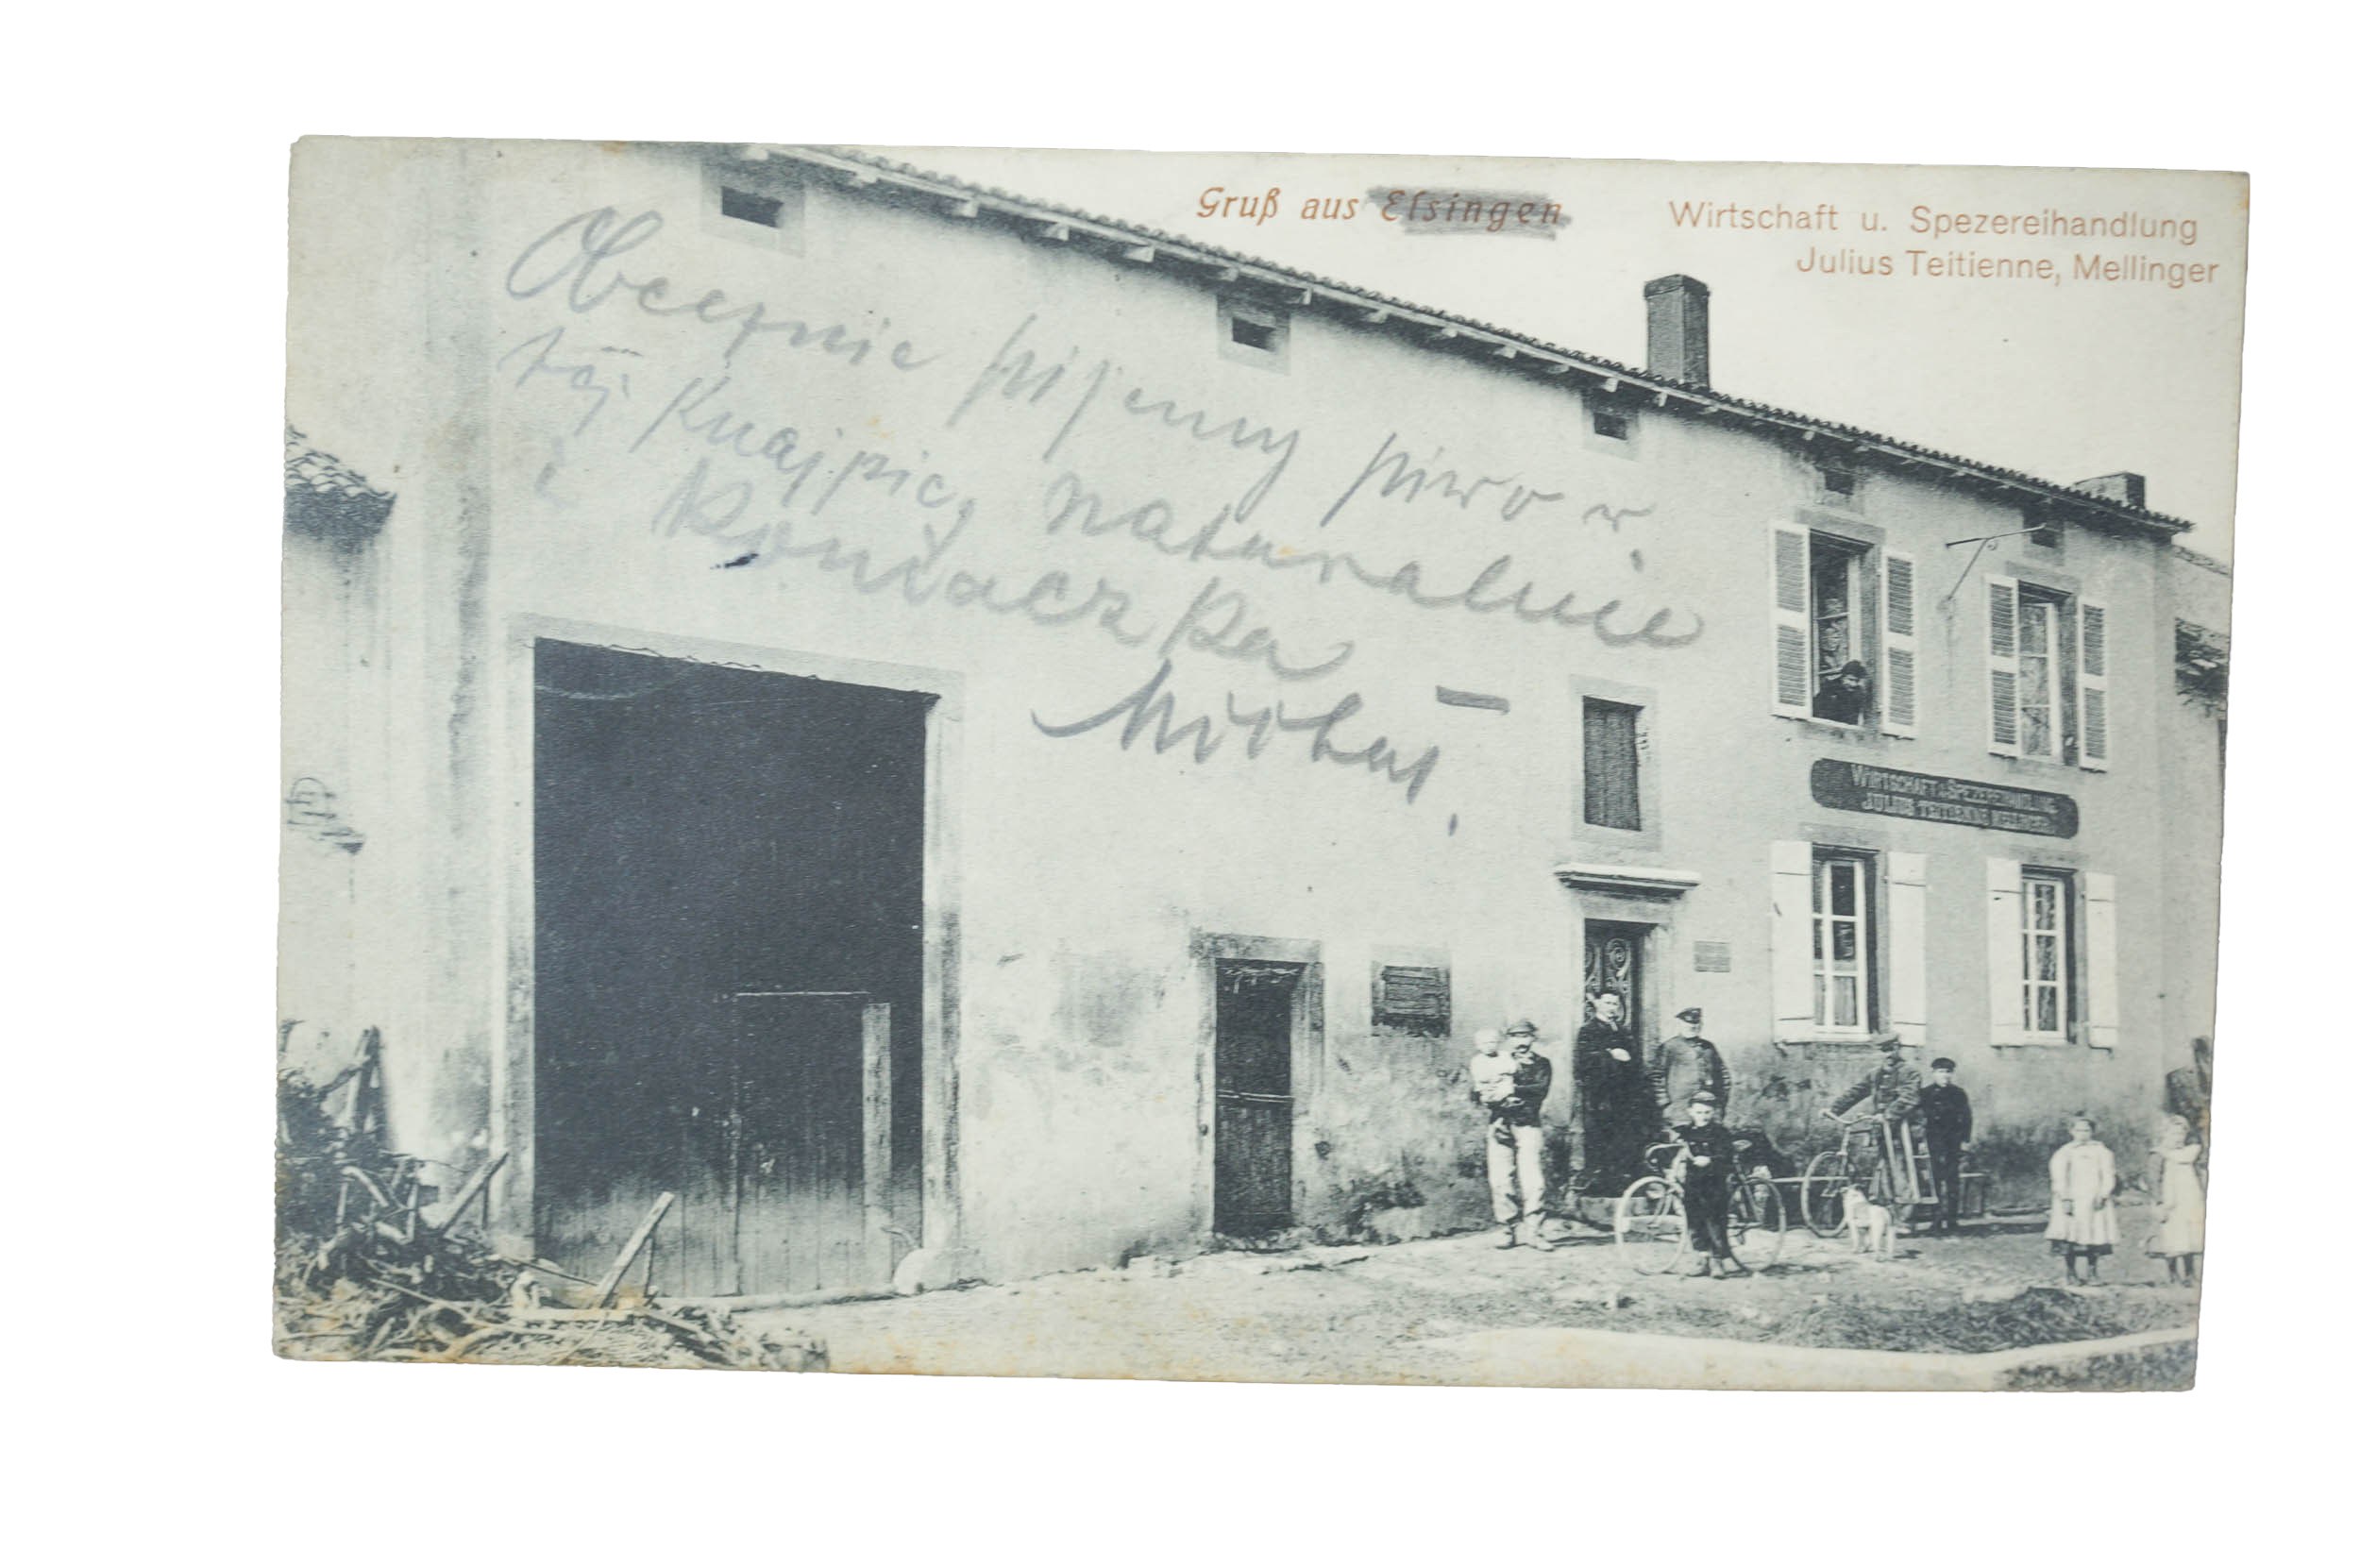 Gruß aus Elsingen
Wirtschaft u. Spezereihandlung
Julius Teitienne, Mellinger
Obecznie pijemy piwo w
tej Knajpie, naturalnie
i Koniaczka –
WIRTSCHAFT u. SPEZEREIHANDLUNG
JULIUS TEITIENNE MELLINGER